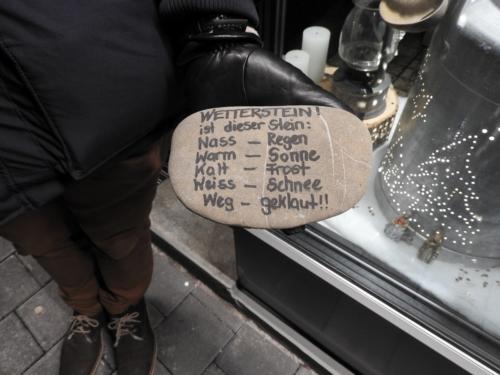 WETTERSTEIN!
ist dieser Stein:
Nass – Regen
Warm – Sonne
Kalt – Frost
Weiss – Schnee
Weg – geklaut!!